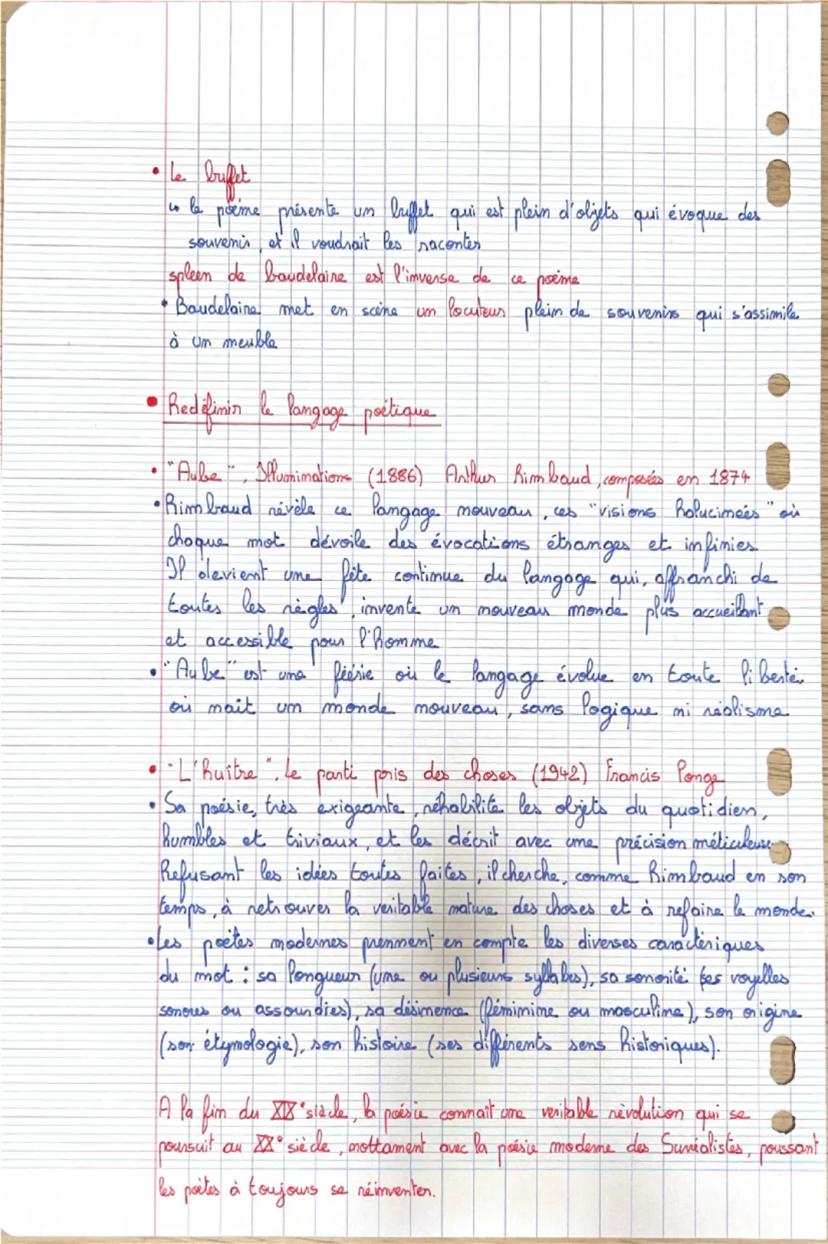 • Le buffet
↳ le poème présente un buffet qui est plein d'objets qui évoque des
souvenir, et il voudrait les raconter
spleen de baudelaire est l'inverse de ce poème
• Baudelaire met en scène un locuteur plein de souvenirs qui s'assimile
à un meuble
• Redéfinir le langage poétique
• "Aube", Illuminations (1886) Arthur Rimbaud, composées en 1874
• Rimbaud révèle ce langage nouveau, ces "visions halucineés" où
chaque mot dévoile des évocations étranges et infinies
Il devient une fête continue du langage qui, affranchi de
toutes les règles, invente un nouveau monde plus accueillant
et accessible pour l'homme
• "Aube" est une féérie où le langage évolue en toute liberté,
où naît un monde nouveau, sans logique ni réalisme
• "L'huître", le parti pris des choses (1942) Francis Ponge
• Sa poésie, très exigeante, réhabilite les objets du quotidien,
humbles et tiviaux, et les décrit avec une précision méticuleuse
Refusant les idées toutes faites, il cherche, comme Rimbaud en son
temps, à retrouver la veritable nature des choses et à refaire le monde.
• Les poètes modernes prennent en compte les diverses caractériques
du mot : sa longueur (une ou plusieurs syllabes), sa sonorité (ses voyelles
sonores ou assourdies), sa désinence (féminine ou masculine), son origine
(son étymologie), son histoire (ses différents sens historiques).
A la fin du XIX° siècle, la poésie connait une veritable révolution qui se
poursuit au XX° siècle, nottament avec la poésie moderne des Surréalistes, poussant
les poètes à toujours se réinventer.